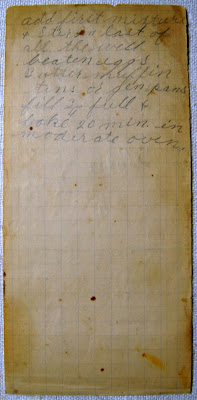 add first mixture
& stir in last of
all the well
beaten eggs
Butter muffin
tins or gem pans
fill 2/3 full &
bake 20 min in
moderate oven